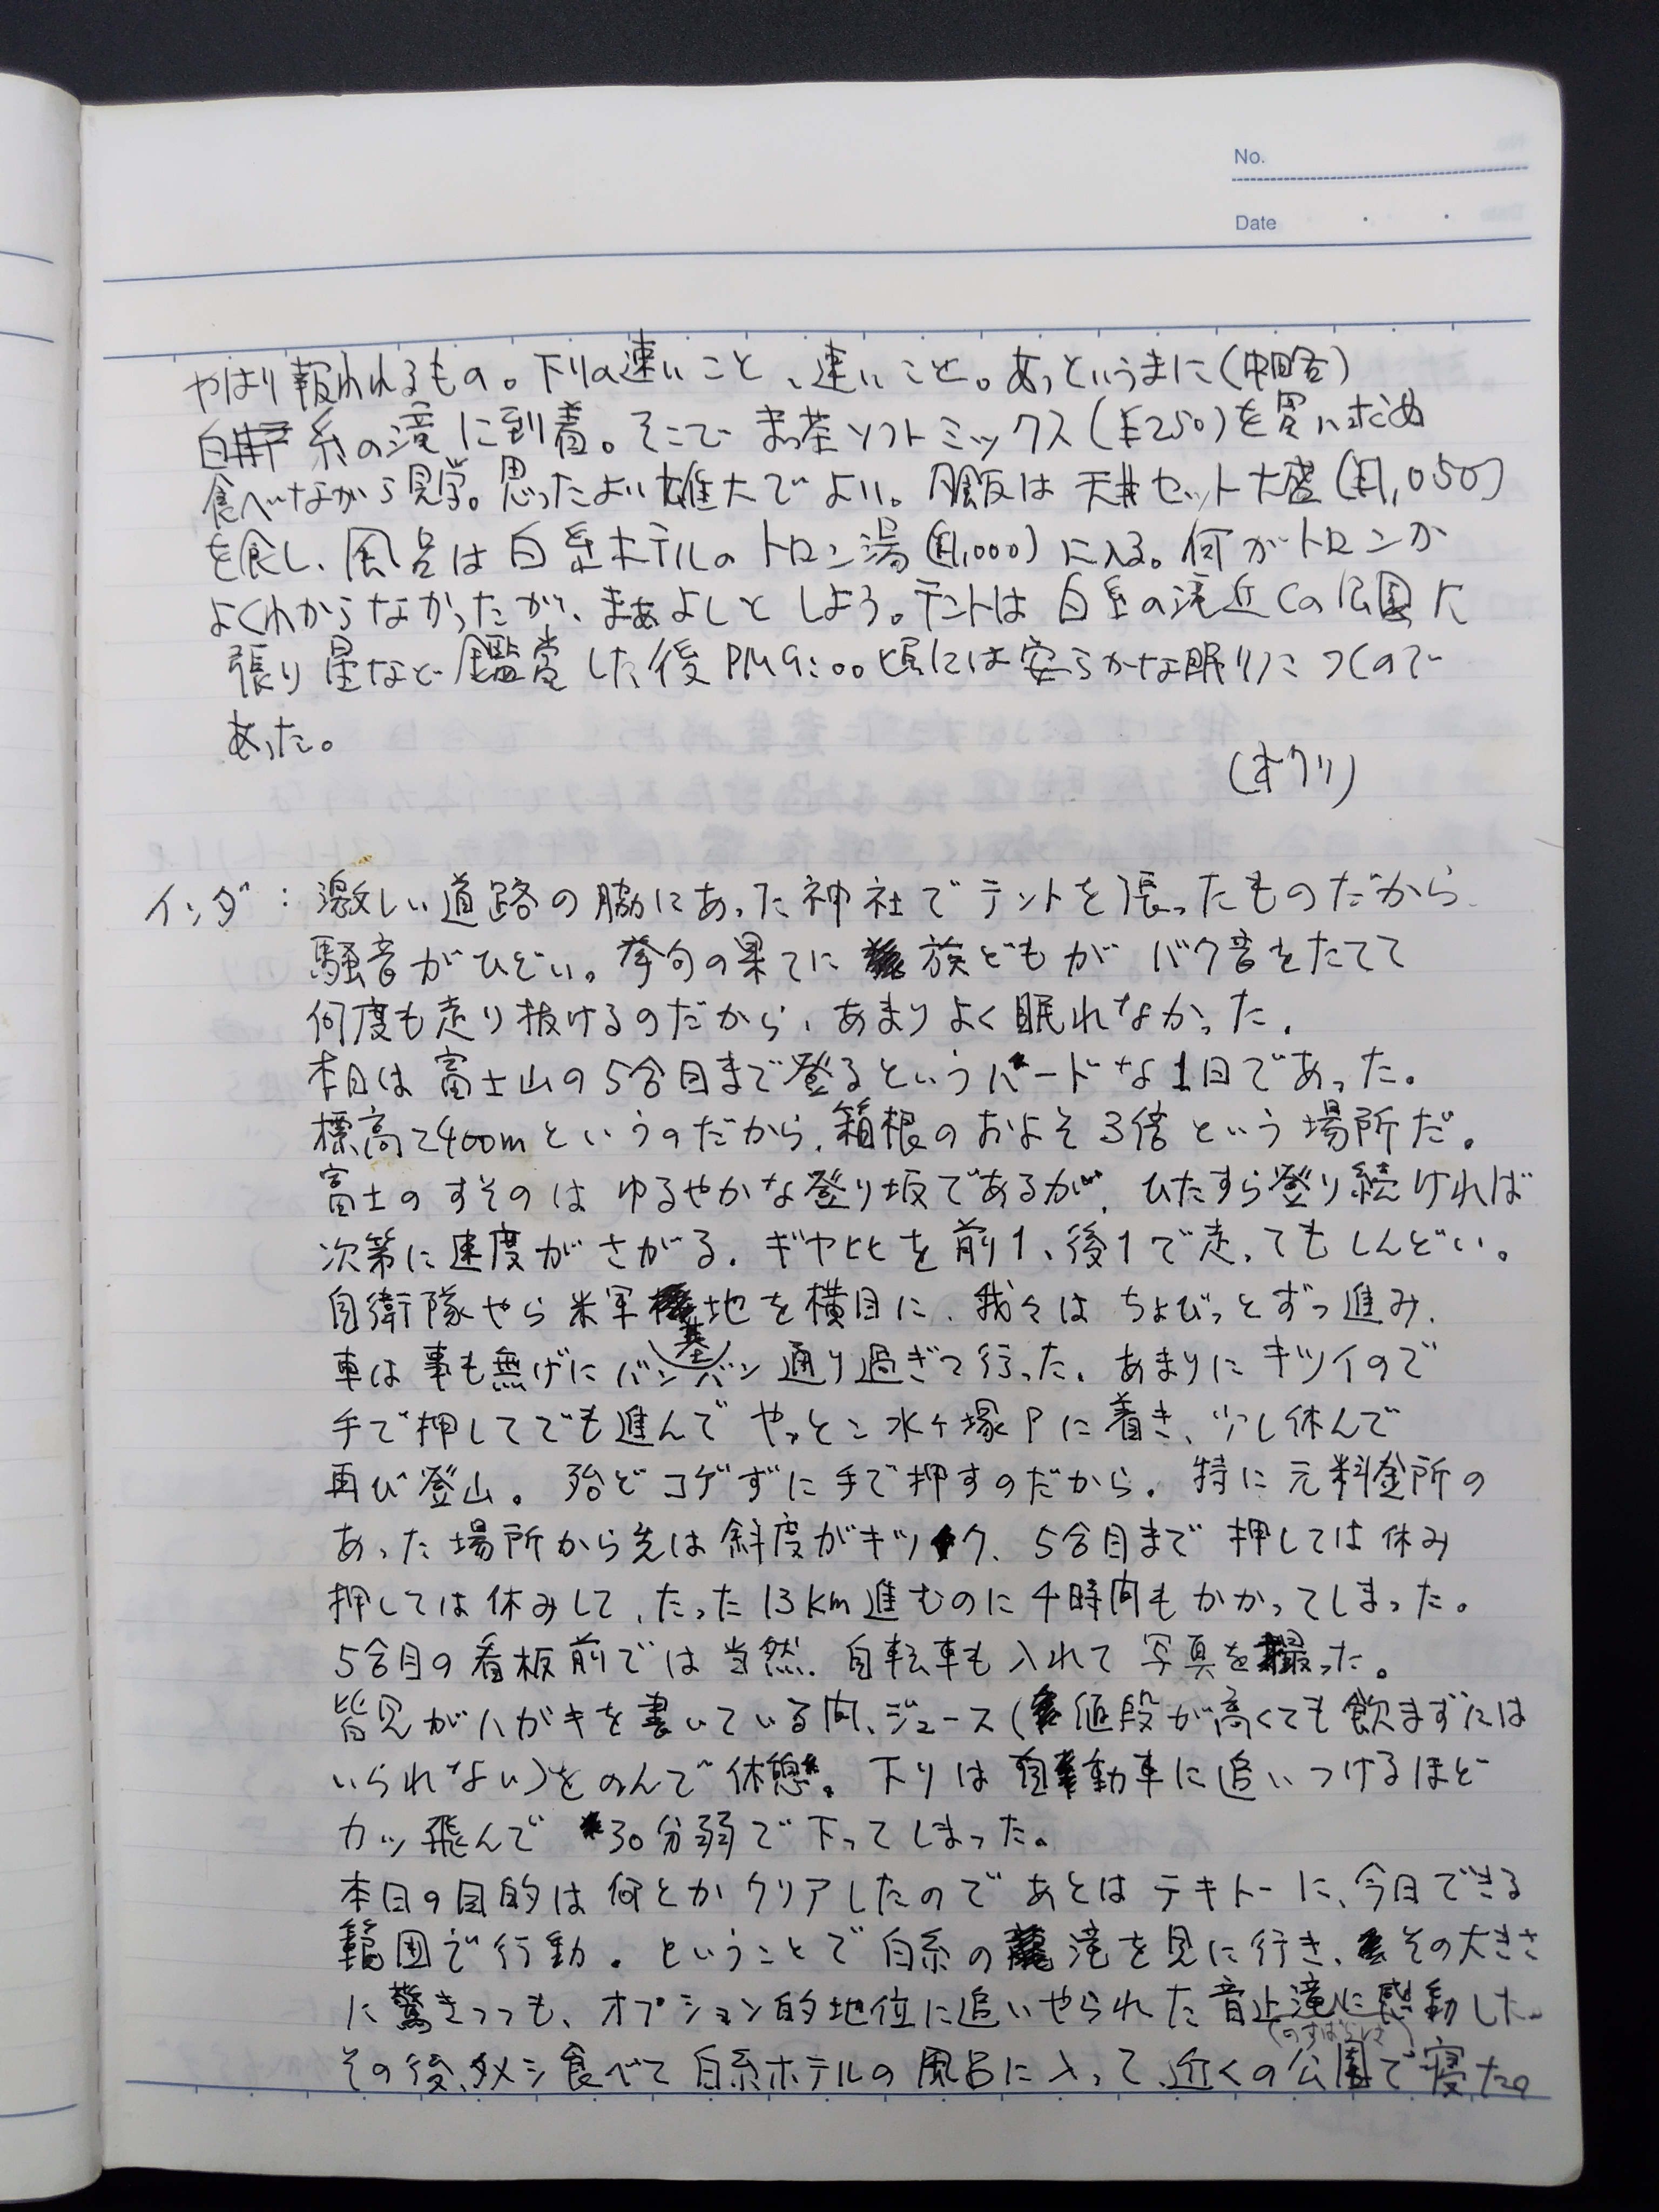 No.
Date
やはり報われるもの。下りの速いこと、速いこと。あっというまに(中略)
白糸の滝に到着。そこで まっ茶ソフトミックス(¥250)を買い求め
食べながら見学。思ったより雄大でよい。夕飯は 天丼セット大盛(¥1,050)
を食し、風呂は白糸ホテルのトロン湯(¥1,000)に入る。何がトロンか
よくわからなかったが、まぁよしとしよう。テントは白糸の滝近くの公園に
張り星など鑑賞した後PM9:00頃には安らかな眠りにつくので
あった。
(オクリ)
インダ:激しい道路の脇にあった神社でテントを張ったものだから
騒音がひどい。挙句の果てに 族どもが バク音をたてて
何度も走り抜けるのだから、あまりよく眠れなかった。
本日は富士山の5合目まで登るというハードな1日であった。
標高2400mというのだから、箱根のおよそ3倍という場所だ。
富士のすそのは ゆるやかな登り坂であるが、ひたすら登り続ければ
次第に速度がさがる。ギヤ比を前1、後1で走ってもしんどい。
自衛隊やら米軍基地を横目に、我々はちょびっとずつ進み、
車は事も無げにバンバン通り過ぎて行った。あまりにキツイので
手で押してでも進んで やっとこ水ヶ塚Pに着き、少し休んで
再び登山。殆どコゲずに手で押すのだから。特に元料金所の
あった場所から先は斜度がキツク、5合目まで押しては休み
押しては休みして、たった13km進むのに4時間もかかってしまった。
5合目の看板前では当然、自転車も入れて写真を撮った。
皆兄がハガキを書いている間、ジュース(値段が高くても飲まずには
いられない)をのんで休憩。下りは自動車に追いつけるほど
カッ飛んで 30分弱で下ってしまった。
本日の目的は何とかクリアしたのであとはテキトーに、今日できる
範囲で行動。ということで白糸の滝を見に行き、その大きさ
に驚きつつも、オプション的地位に追いやられた音止滝に感動した
(のすばらしさ)
その後、夕メシ食べて白糸ホテルの風呂に入って、近くの公園で寝た。